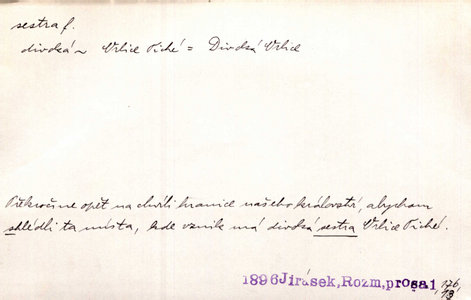 sestra f.
divoká ~ Orlice Tiché = Divoká Orlice
Překročme opět na chvíli hranice našeho království, abychom
shlédli ta místa, kde vznik má divoká sestra Orlice Tiché.
1896 Jirásek, Rozm, prosa 1, 176,
13